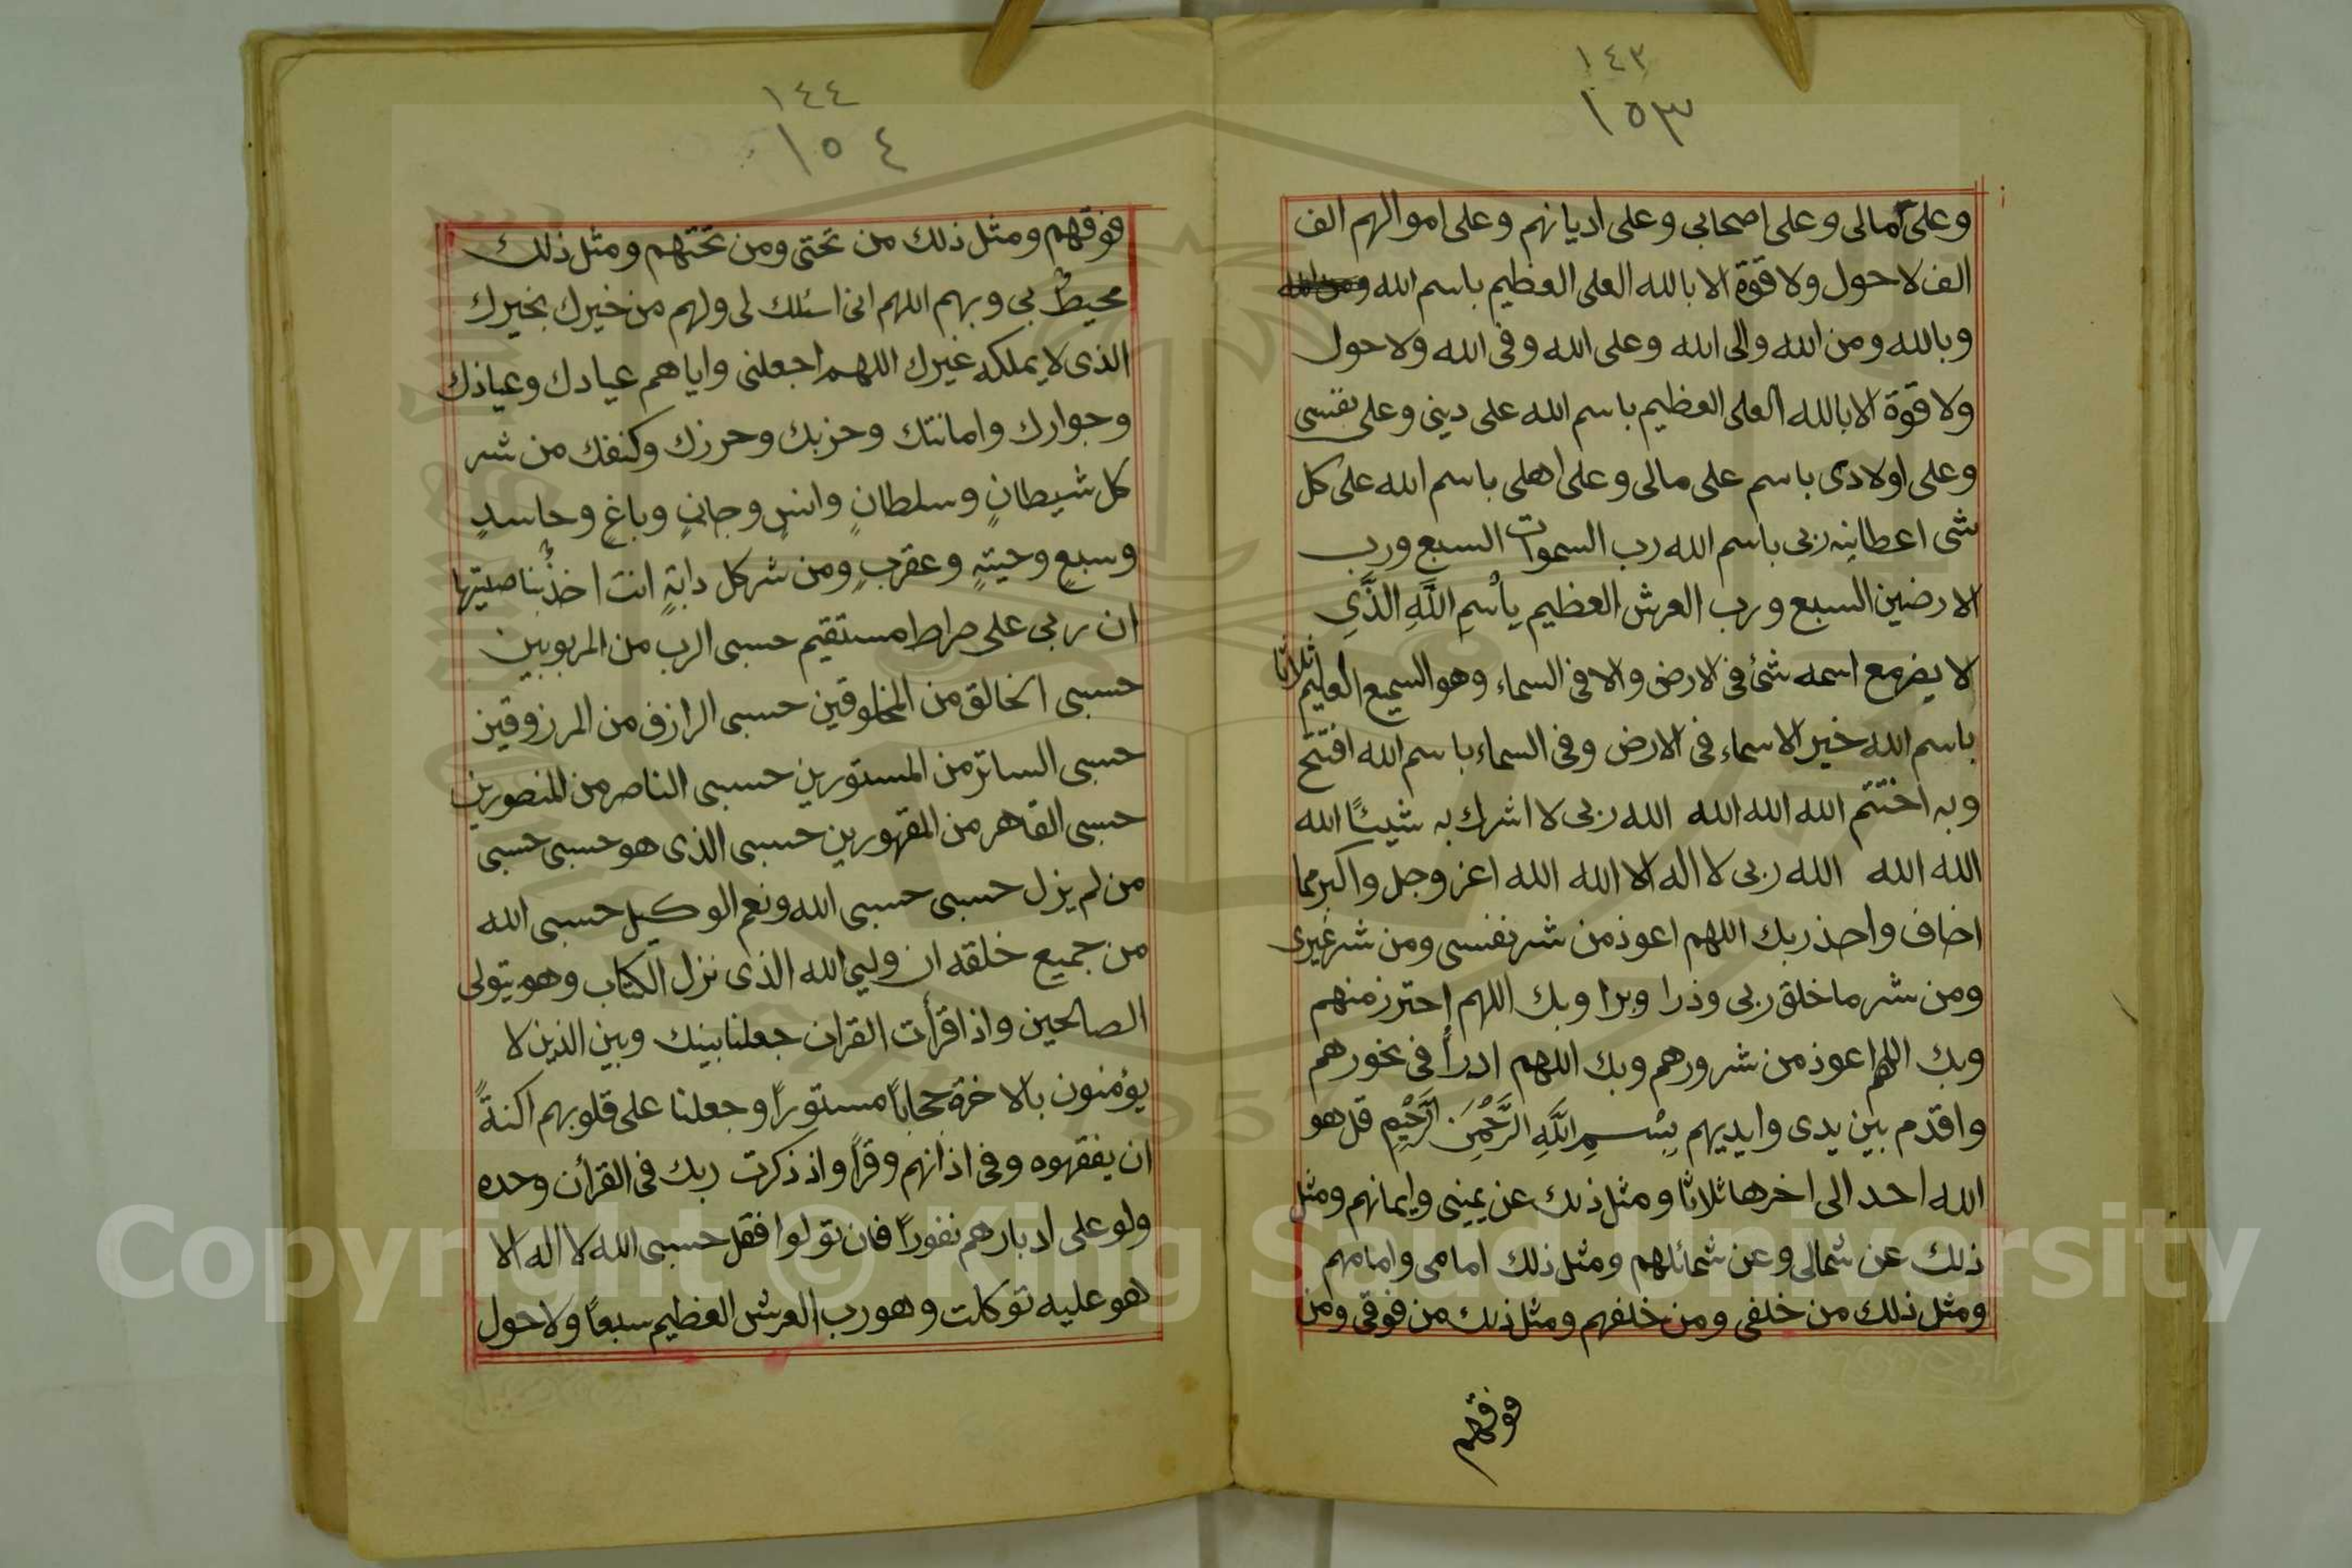 ١٤٣
١٥٣
وعلى مالى وعلى اصحابى وعلى اديانهم وعلى اموالهم الف
الف لا حول ولا قوة الا بالله العلى العظيم باسم الله
وبالله ومن الله والى الله وعلى الله وفى الله ولا حول
ولا قوة الا بالله العلى العظيم باسم الله على دينى وعلى نفسى
وعلى اولادى باسم على مالى وعلى اهلى باسم الله على كل
شى اعطانيه ربى باسم الله رب السموات السبع ورب
الارضين السبع ورب العرش العظيم بِاسْمِ اللَّهِ الَّذِي
لا يضر مع اسمه شئ فى الارض ولا فى السماء وهو السميع العليم ثلاثا
باسم الله خير الاسماء فى الارض وفى السماء باسم الله افتتح
وبه اختتم الله الله الله الله ربى لا اشرك به شيئًا الله
الله الله الله ربى لا اله الا الله الله اعز وجل واكبر مما
اخاف واحذر بك اللهم اعوذ من شر نفسى ومن شر غيرى
ومن شر ما خلق ربى وذرا وبرا وبك اللهم احترز منهم
وبك اللهم اعوذ من شرورهم وبك اللهم ادرأ فى نحورهم
واقدم بين يدى وايديهم بِسْمِ اللَّهِ الرَّحْمَنِ الرَّحِيمِ قل هو
الله احد الى اخرها ثلاثا ومثل ذلك عن يمينى وايمانهم ومثل
ذلك عن شمالى وعن شمائلهم ومثل ذلك امامى وامامهم
ومثل ذلك من خلفى ومن خلفهم ومثل ذلك من فوقى ومن
فوقهم
١٤٤
١٥٤
فوقهم ومثل ذلك من تحتى ومن تحتهم ومثل ذلك
محيطٌ بى وبهم اللهم انى اسئلك لى ولهم من خيرك بخيرك
الذى لا يملكه غيرك اللهم اجعلنى واياهم عبادك وعياذك
وجوارك وامانتك وحزبك وحرزك وكنفك من شر
كل شيطانٍ وسلطانٍ وانسٍ وجانٍ وباغٍ وحاسدٍ
وسبعٍ وحيتهٍ وعقربٍ ومن شر كل دابةٍ انت اخذٌ بناصيتها
ان ربى على صراط مستقيم حسبى الرب من المربوبين
حسبى الخالق من المخلوقين حسبى الرازق من المرزوقين
حسبى الساتر من المستورين حسبى الناصر من المنصورين
حسبى القاهر من المقهورين حسبى الذى هو حسبى حسبى
من لم يزل حسبى حسبى الله ونعم الوكيل حسبى الله
من جميع خلقه ان وليى الله الذى نزل الكتاب وهو يتولى
الصالحين واذا قرأت القران جعلنا بينك وبين الذين لا
يؤمنون بالاخرة حجاباً مستوراً وجعلنا على قلوبهم اكنةً
ان يفقهوه وفى اذانهم وقراً واذ ذكرت ربك فى القرأن وحده
ولو على ادبارهم نفوراً فان تولوا فقل حسبى الله لا اله الا
هو عليه توكلت وهو رب العرش العظيم سبعاً ولا حول
Copyright © King Saud University